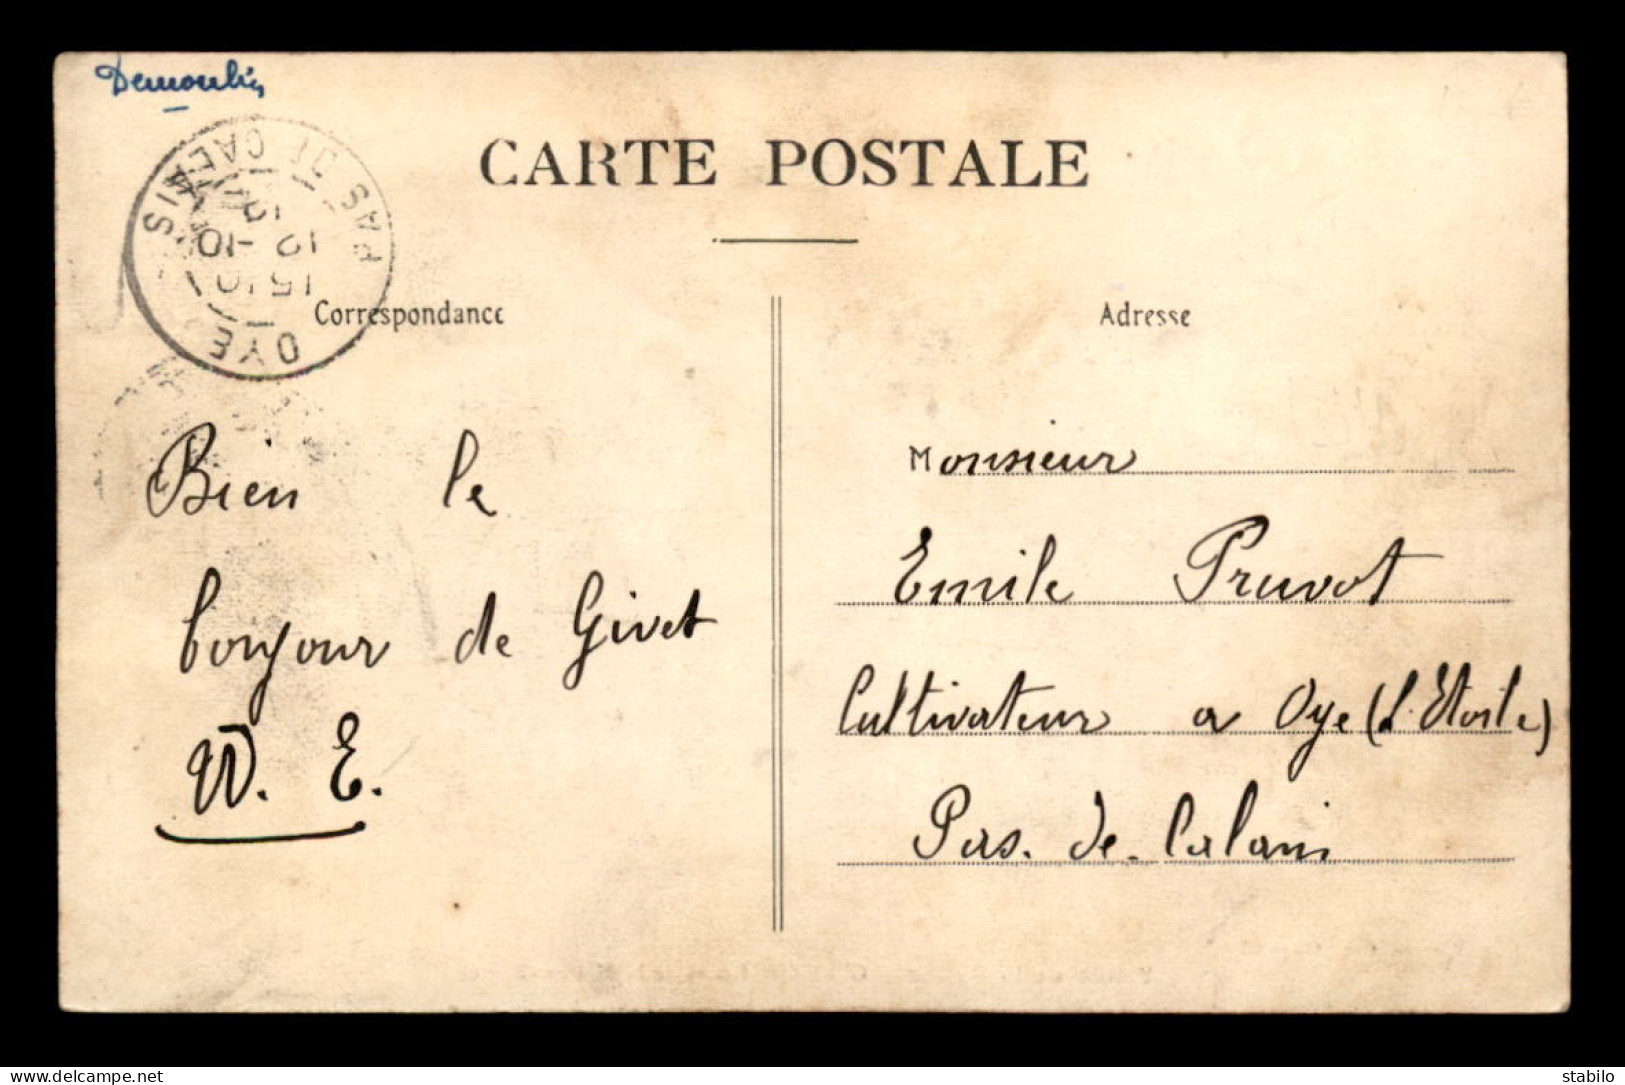 Demoulin
CARTE POSTALE
PAS DE CALAIS
15*10
12 -10
12
OYE
Correspondance
Adresse
Bien le
bonjour de Givet
E.
Monsieur
Emile Pruvot
Cultivateur a Oye (l'Etoile)
Pas-de-Calais
www.delcampe.net
stabilo